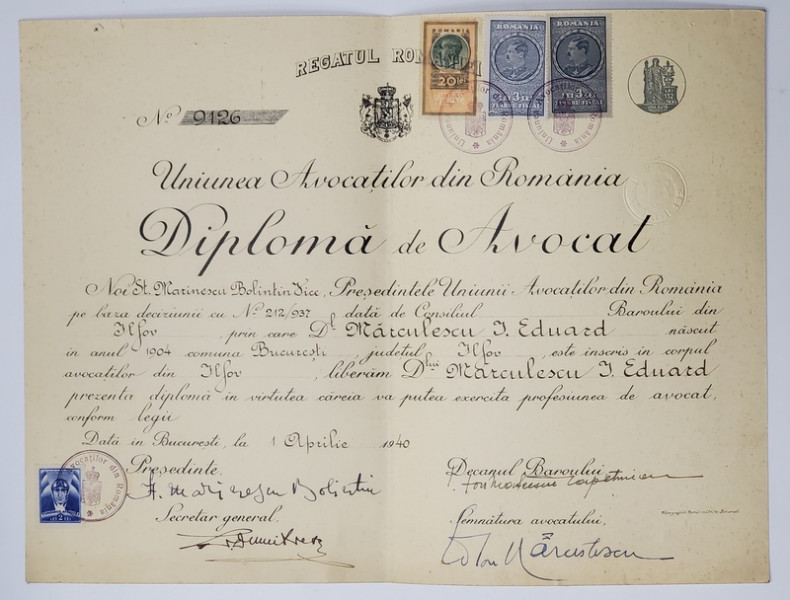 REGATUL ROMÂNIEI
ROMANIA
20 LEI
ROMANIA
LEI 3 LEI
TIMBRU FISCAL
ROMANIA
LEI 3 LEI
TIMBRU FISCAL
No 9126
Uniunea Avocaților din România
Uniunea Avocaților din România
Uniunea Avocaților din România
Diplomă de Avocat
Noi St. Marinescu Bolintin Vice, Președintele Uniunii Avocaților din România
pe baza deciziunii cu No 212/937 dată de Consiliul Baroului din
Ilfov, prin care Dl Mărculescu I. Eduard născut
in anul 1904 comuna București, județul Ilfov, este inscris in corpul
avocaților din Ilfov, liberăm Dlui Mărculescu I. Eduard
prezenta diplomă in virtutea căreia va putea exercita profesiunea de avocat,
conform legii
Dată in București, la 1 Aprilie 1940
Președinte. Decanul Baroului
St. Marinescu Bolintin
Uniunea Avocaților din România
LEI 2 LEI
Secretar general. Semnătura avocatului,